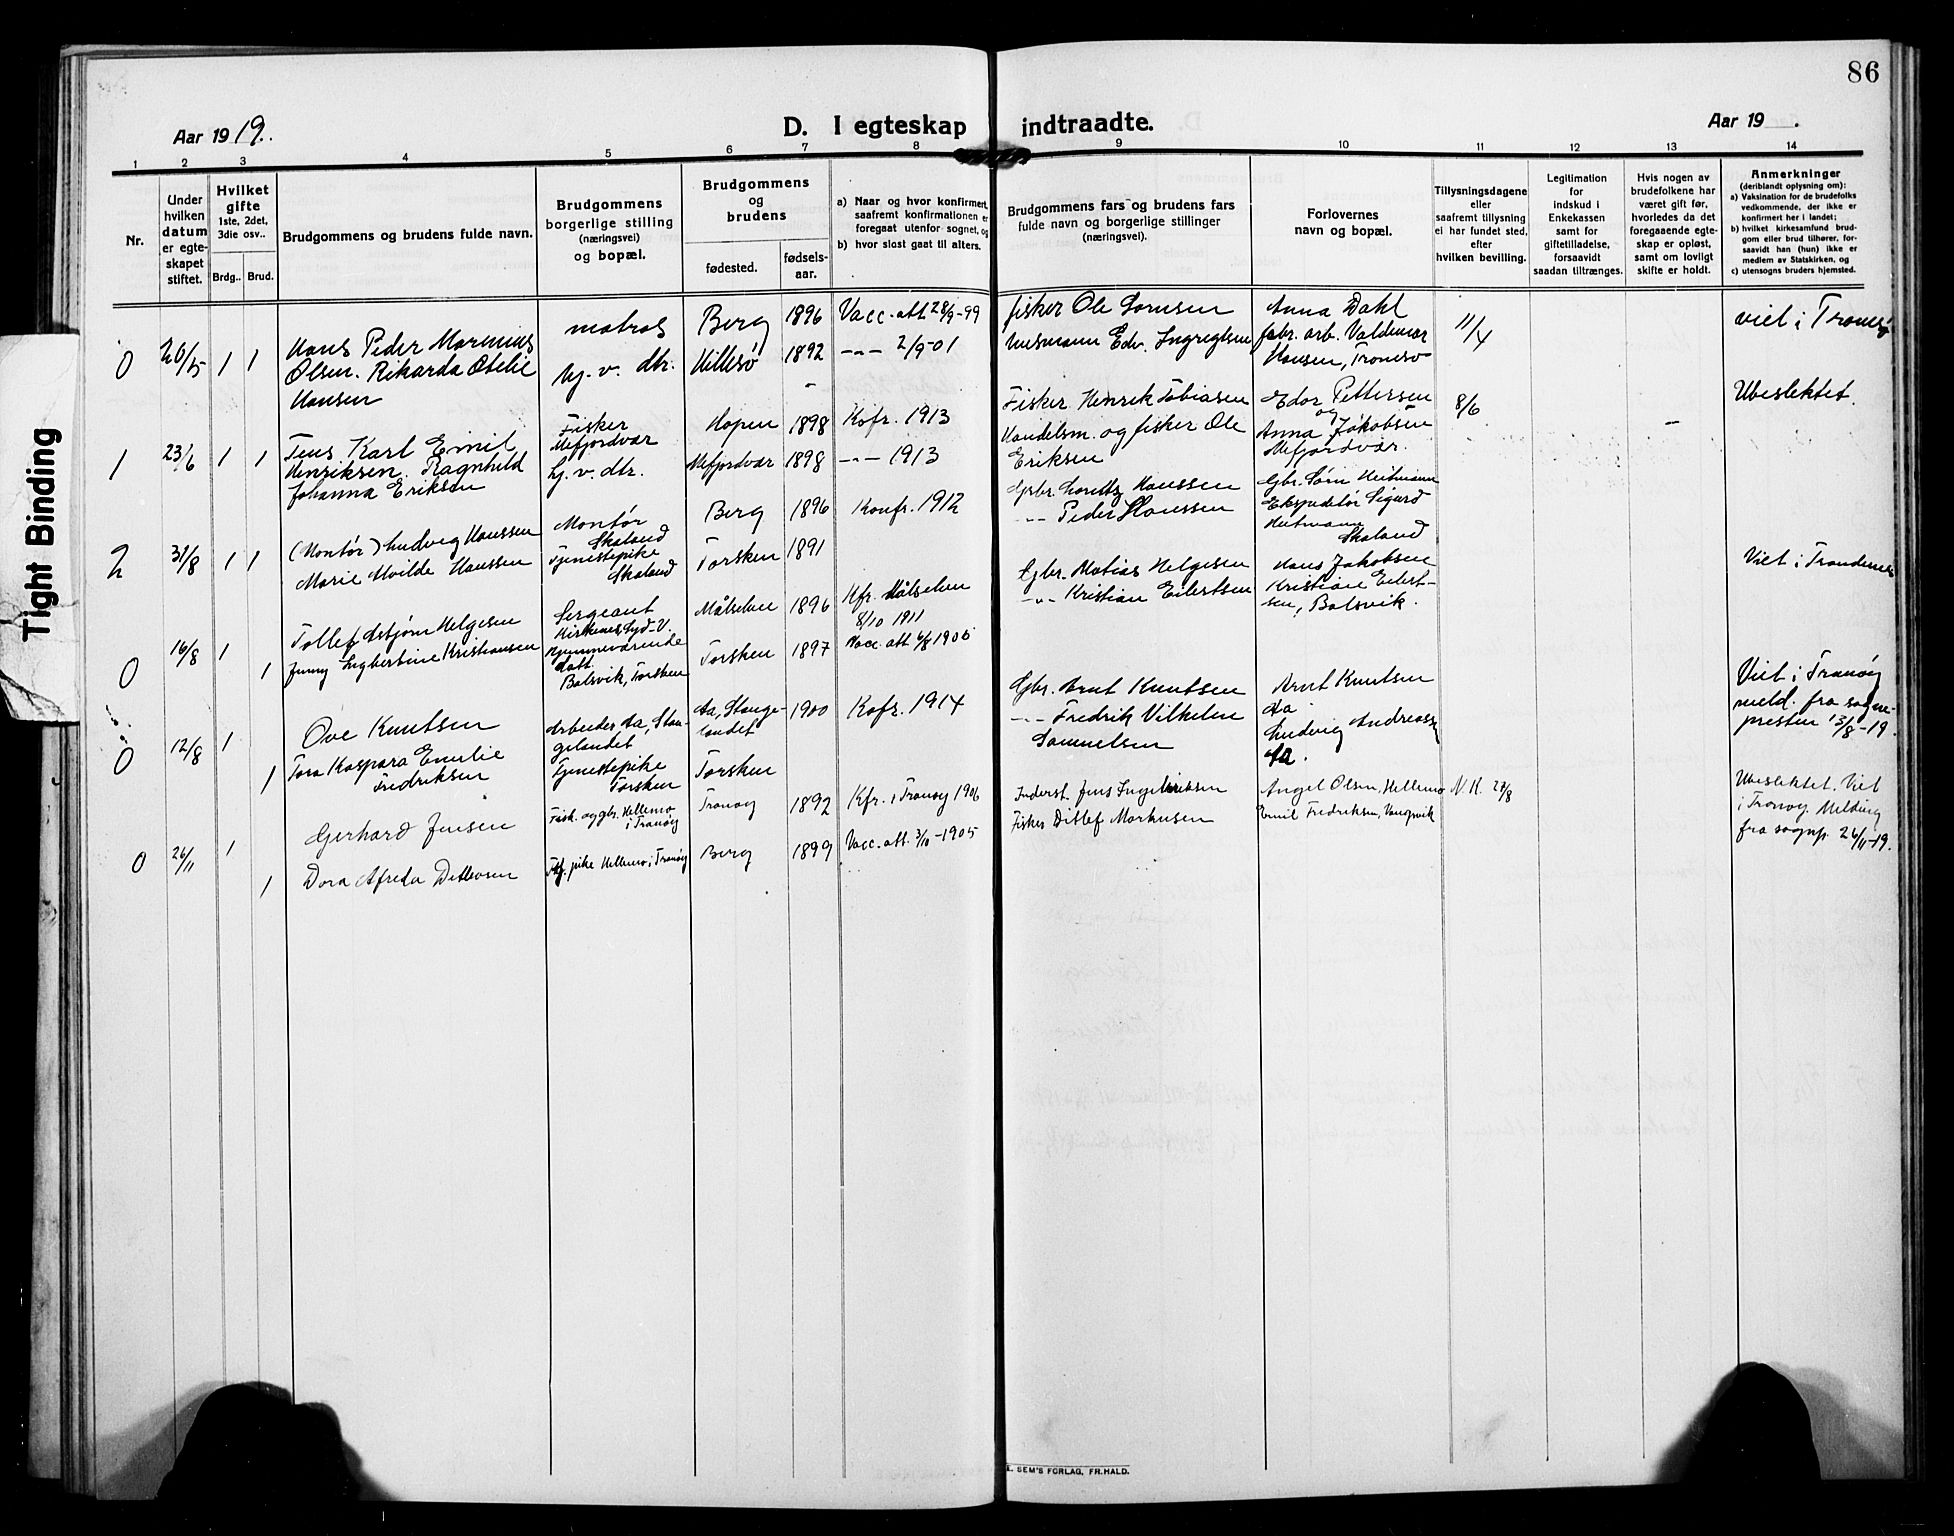 86
Tight Binding
Aar 1919.
D. I egteskap indtraadte.
Aar 19 .
1 2 3 4 5 6 7 8 9 10 11 12 13 14
Nr.
Under
hvilken
datum
er egte-
skapet
stiftet.
Hvilket
gifte
1ste, 2det,
3die osv..
Brdg.. Brud.
Brudgommens og brudens fulde navn.
Brudgommens
borgerlige stilling
(næringsvei)
og bopæl.
Brudgommens
og
brudens
fødested.
fødsels-
aar.
a) Naar og hvor konfirmert,
saafremt konfirmationen er
foregaat utenfor sognet, og
b) hvor sidst gaat til alters.
Brudgommens fars og brudens fars
fulde navn og borgerlige stillinger
(næringsvei).
Forlovernes
navn og bopæl.
Tillysningsdagene
eller
saafremt tillysning
ei har fundet sted,
efter
hvilken bevilling.
Legitimation
for
indskud i
Enkekassen
samt for
giftetilladelse,
forsaavidt
saadan tiltrænges.
Hvis nogen av
brudefolkene har
været gift før,
hvorledes da det
foregaaende egte-
skap er opløst,
samt om lovligt
skifte er holdt.
Anmerkninger
(deriblandt oplysning om):
a) Vaksination for de brudefolks
vedkommende, der ikke er
konfirmert her i landet;
b) hvilket kirkesamfund brud-
gom eller brud tilhører, for-
saavidt han (hun) ikke er
medlem av Statskirken, og
c) utensogns bruders hjemsted.
0 26/5 1 1
Hans Peder Marinius
Olsen. Rikarda Otelie
Hansen
matros
Hj. v. dtr.
Berg 1896 Vacc. att 28/9-99
Hillesø 1892 -"- 2/9-01
fisker Ole Sørnsen
Husmann Edv. Ingregtsen
Anna Dahl
fabr. arb. Valdemar
Hansen, Tromsø
11/4
viet i Tromsø
1 23/6 1 1
Jens Karl Emil
Henriksen. Ragnhild
Johanna Eriksen
Fisker
Mefjordvær
hj. v. dtr.
Hopen 1898 Kofr. 1913
Mefjordvær 1898 -"- 1913
Fisker Henrik Tobiasen
Handelsm. og fisker Ole
Eriksen
Edor Pettersen
og
Anna Jakobsen
Mefjordvær.
8/6
Ubeslektet.
2 31/8 1 1
(Montør) Ludvig Hanssen
Marie Alvilde Hanssen
Montør
Skaland
Tjenestepike
Skaland
Berg 1896 Konfr. 1912
Torsken 1891
Gbr. Loretts Hanssen
-"- Peder Hanssen
Gbr. Sørn Heitmann
Ekspeditør Sigurd
Heitmann
Skaland
0 16/8 1 1
Tollef Asbjørn Helgesen
Jenny Ingbertine Kristiansen
Sergeant
Kirkenes, Syd-V.
Hjemmeværende
datt.
Balsvik, Torsken
Målselven 1896 Kfr. Målselven
8/10 1911
Torsken 1897 Vacc. att 6/8 1905
Gbr. Matias Helgesen
-"- Kristian Eilertsen
Hans Jakobsen
Kristian Eilert-
sen, Balsvik.
Viet i Trondenes
0 12/8 1 1
Ove Knutsen
Tora Kaspara Emelie
Fredriksen
Arbeider Aa, Stan-
gelandet
Tjenestepike
Torsken
Aa, Stange-
landet 1900 Kofr. 1914
Torsken
Gbr. Arnt Knutsen
-"- Fredrik Vilhelm
Samuelsen
Arnt Knutsen
Aa
Ludvig Andreass
Aa.
Viet i Tranøy
meld. fra sogne-
presten 13/8-19.
0 26/11 1 1
Gerhard Jensen
Dora Alfreda Ditlevsen
Fisk. og gbr. Hellemo
i Tranøy
Tj. pike Hellemo i Tranøy
Tranøy 1892 Kfr. i Tranøy 1906
Berg 1899 Vacc. att. 3/10-1905
Inderst. Jens Ingebriksen
Fisker Ditlef Markusen
Angel Olsen, Hellemo
Emil Fredriksen, Vangsvik
N. H. 27/8
Ubeslektet. Viet
i Tranøy. Melding
fra sognp. 26/11-19.
E. SEM'S FORLAG, FR.HALD.